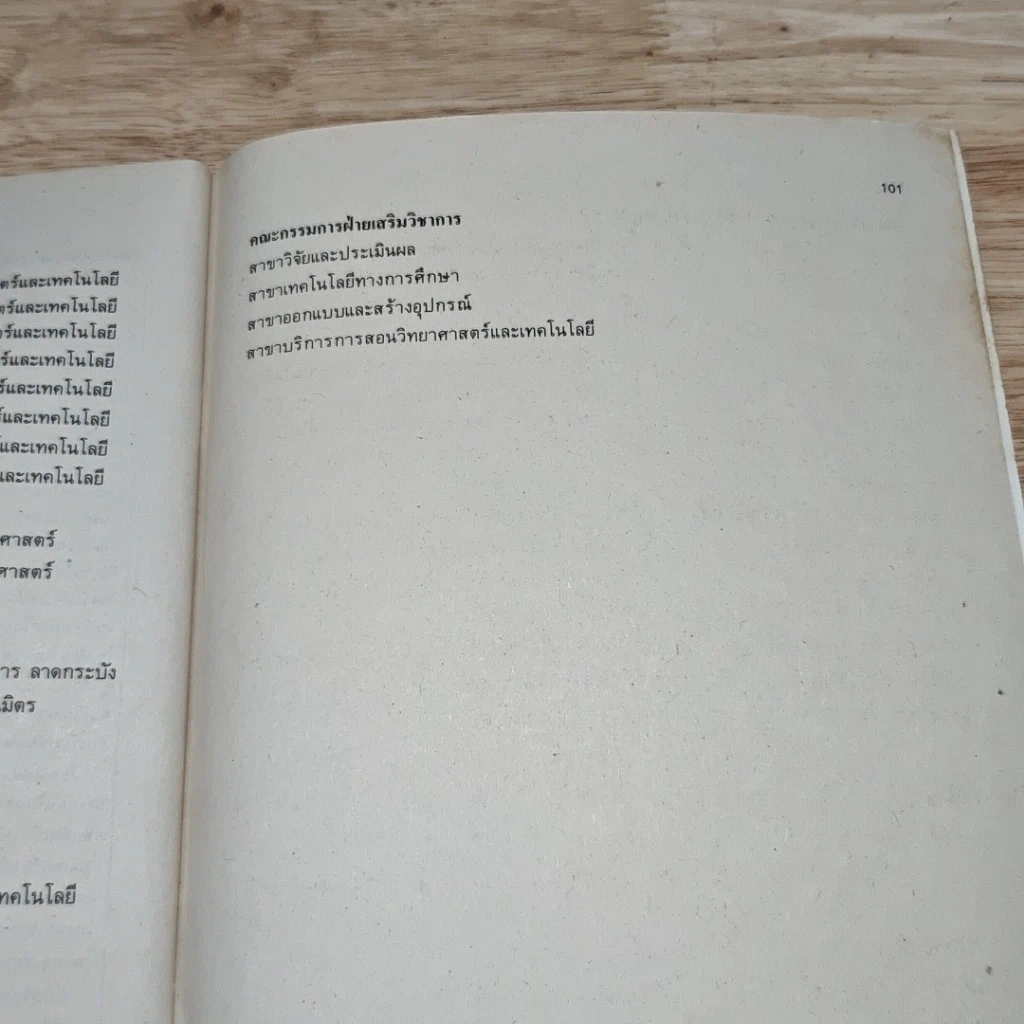 ตร์และเทคโนโลยี
ตร์และเทคโนโลยี
ร์และเทคโนโลยี
ร์และเทคโนโลยี
ร์และเทคโนโลยี
และเทคโนโลยี
และเทคโนโลยี
และเทคโนโลยี
ศาสตร์
ศาสตร์
าร ลาดกระบัง
มิตร
ทคโนโลยี
101
คณะกรรมการฝ่ายเสริมวิชาการ
สาขาวิจัยและประเมินผล
สาขาเทคโนโลยีทางการศึกษา
สาขาออกแบบและสร้างอุปกรณ์
สาขาบริการการสอนวิทยาศาสตร์และเทคโนโลยี